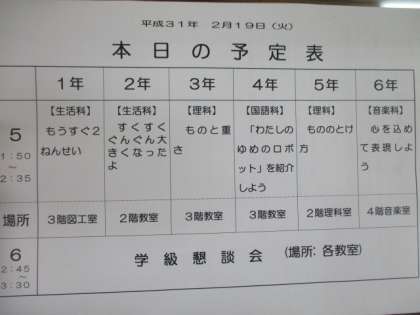 平成31年　2月19日（火）
本日の予定表
1年　2年　3年　4年　5年　6年
5
1:50
～
2:35
【生活科】
もうすぐ2
ねんせい
【生活科】
すくすく
ぐんぐん大
きくなった
よ
【理科】
ものと重
さ
【国語科】
「わたしの
ゆめのロボ
ット」を紹介
しよう
【理科】
もののとけ
方
【音楽科】
心を込め
て表現しよ
う
場所　3階図工室　2階教室　3階教室　3階教室　2階理科室　4階音楽室
6
2:45
～
3:30
学級懇談会　（場所：各教室）